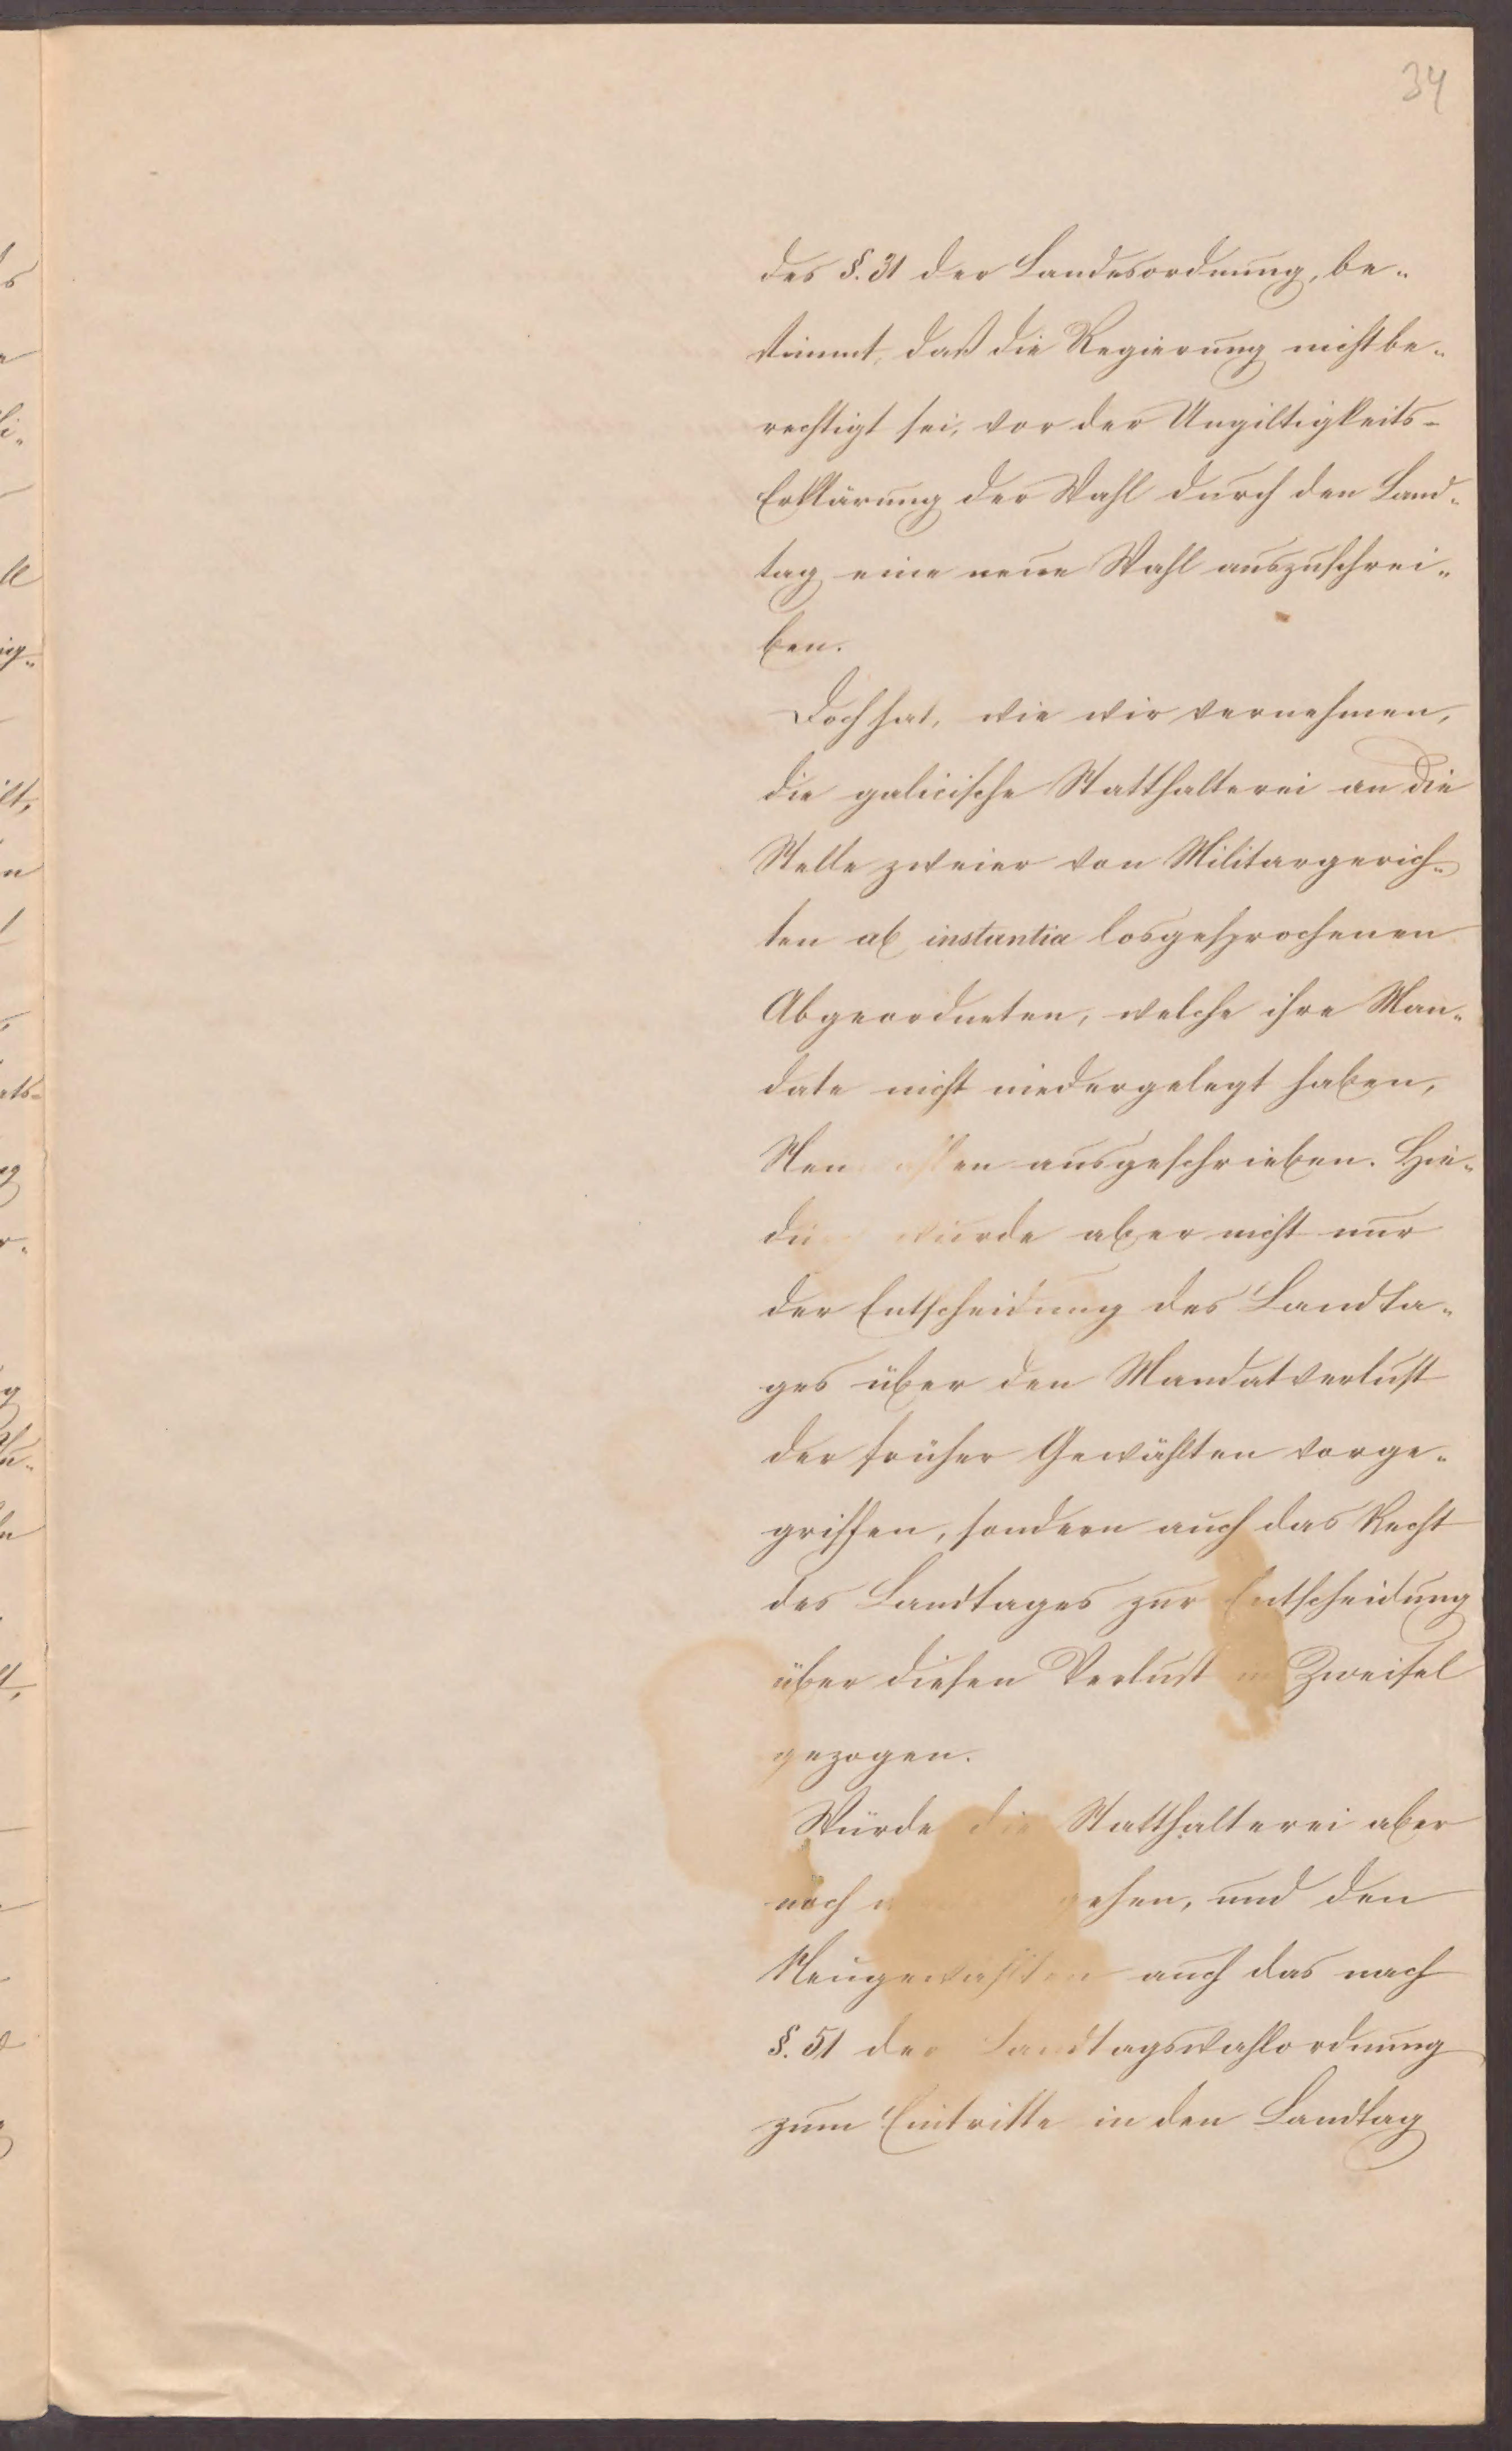 34
des §. 31 der Landesordnung, be„
stimmt, daß die Regierung nicht be„
rechtigt sei, vor der Ungiltigkeits-
Erklärung der Wahl durch den Land„
tag eine neue Wahl auszuschrei„
ben.
Doch hat, wie wir vernehmen,
die galicische Statthalterei an die
Stelle zweier von Militargerich„
ten ab instantia losgesprochenen
Abgeordneten, welche ihre Man„
date nicht niedergelegt haben,
ausgeschrieben. Hie„
wurde aber nicht nur
der Entscheidung des Landta„
ges über den Mandatverlust
der früher Gewählten vorge„
griffen, sondern auch das Recht
des Landtages zur Entscheidung
über diesen Verlust in Zweifel
gezogen.
Würde die Statthalterei aber
noch gehen, und den
Neugewählten auch das nach
§. 51 der Landtagswahlordnung
zum Eintritte in den Landtag